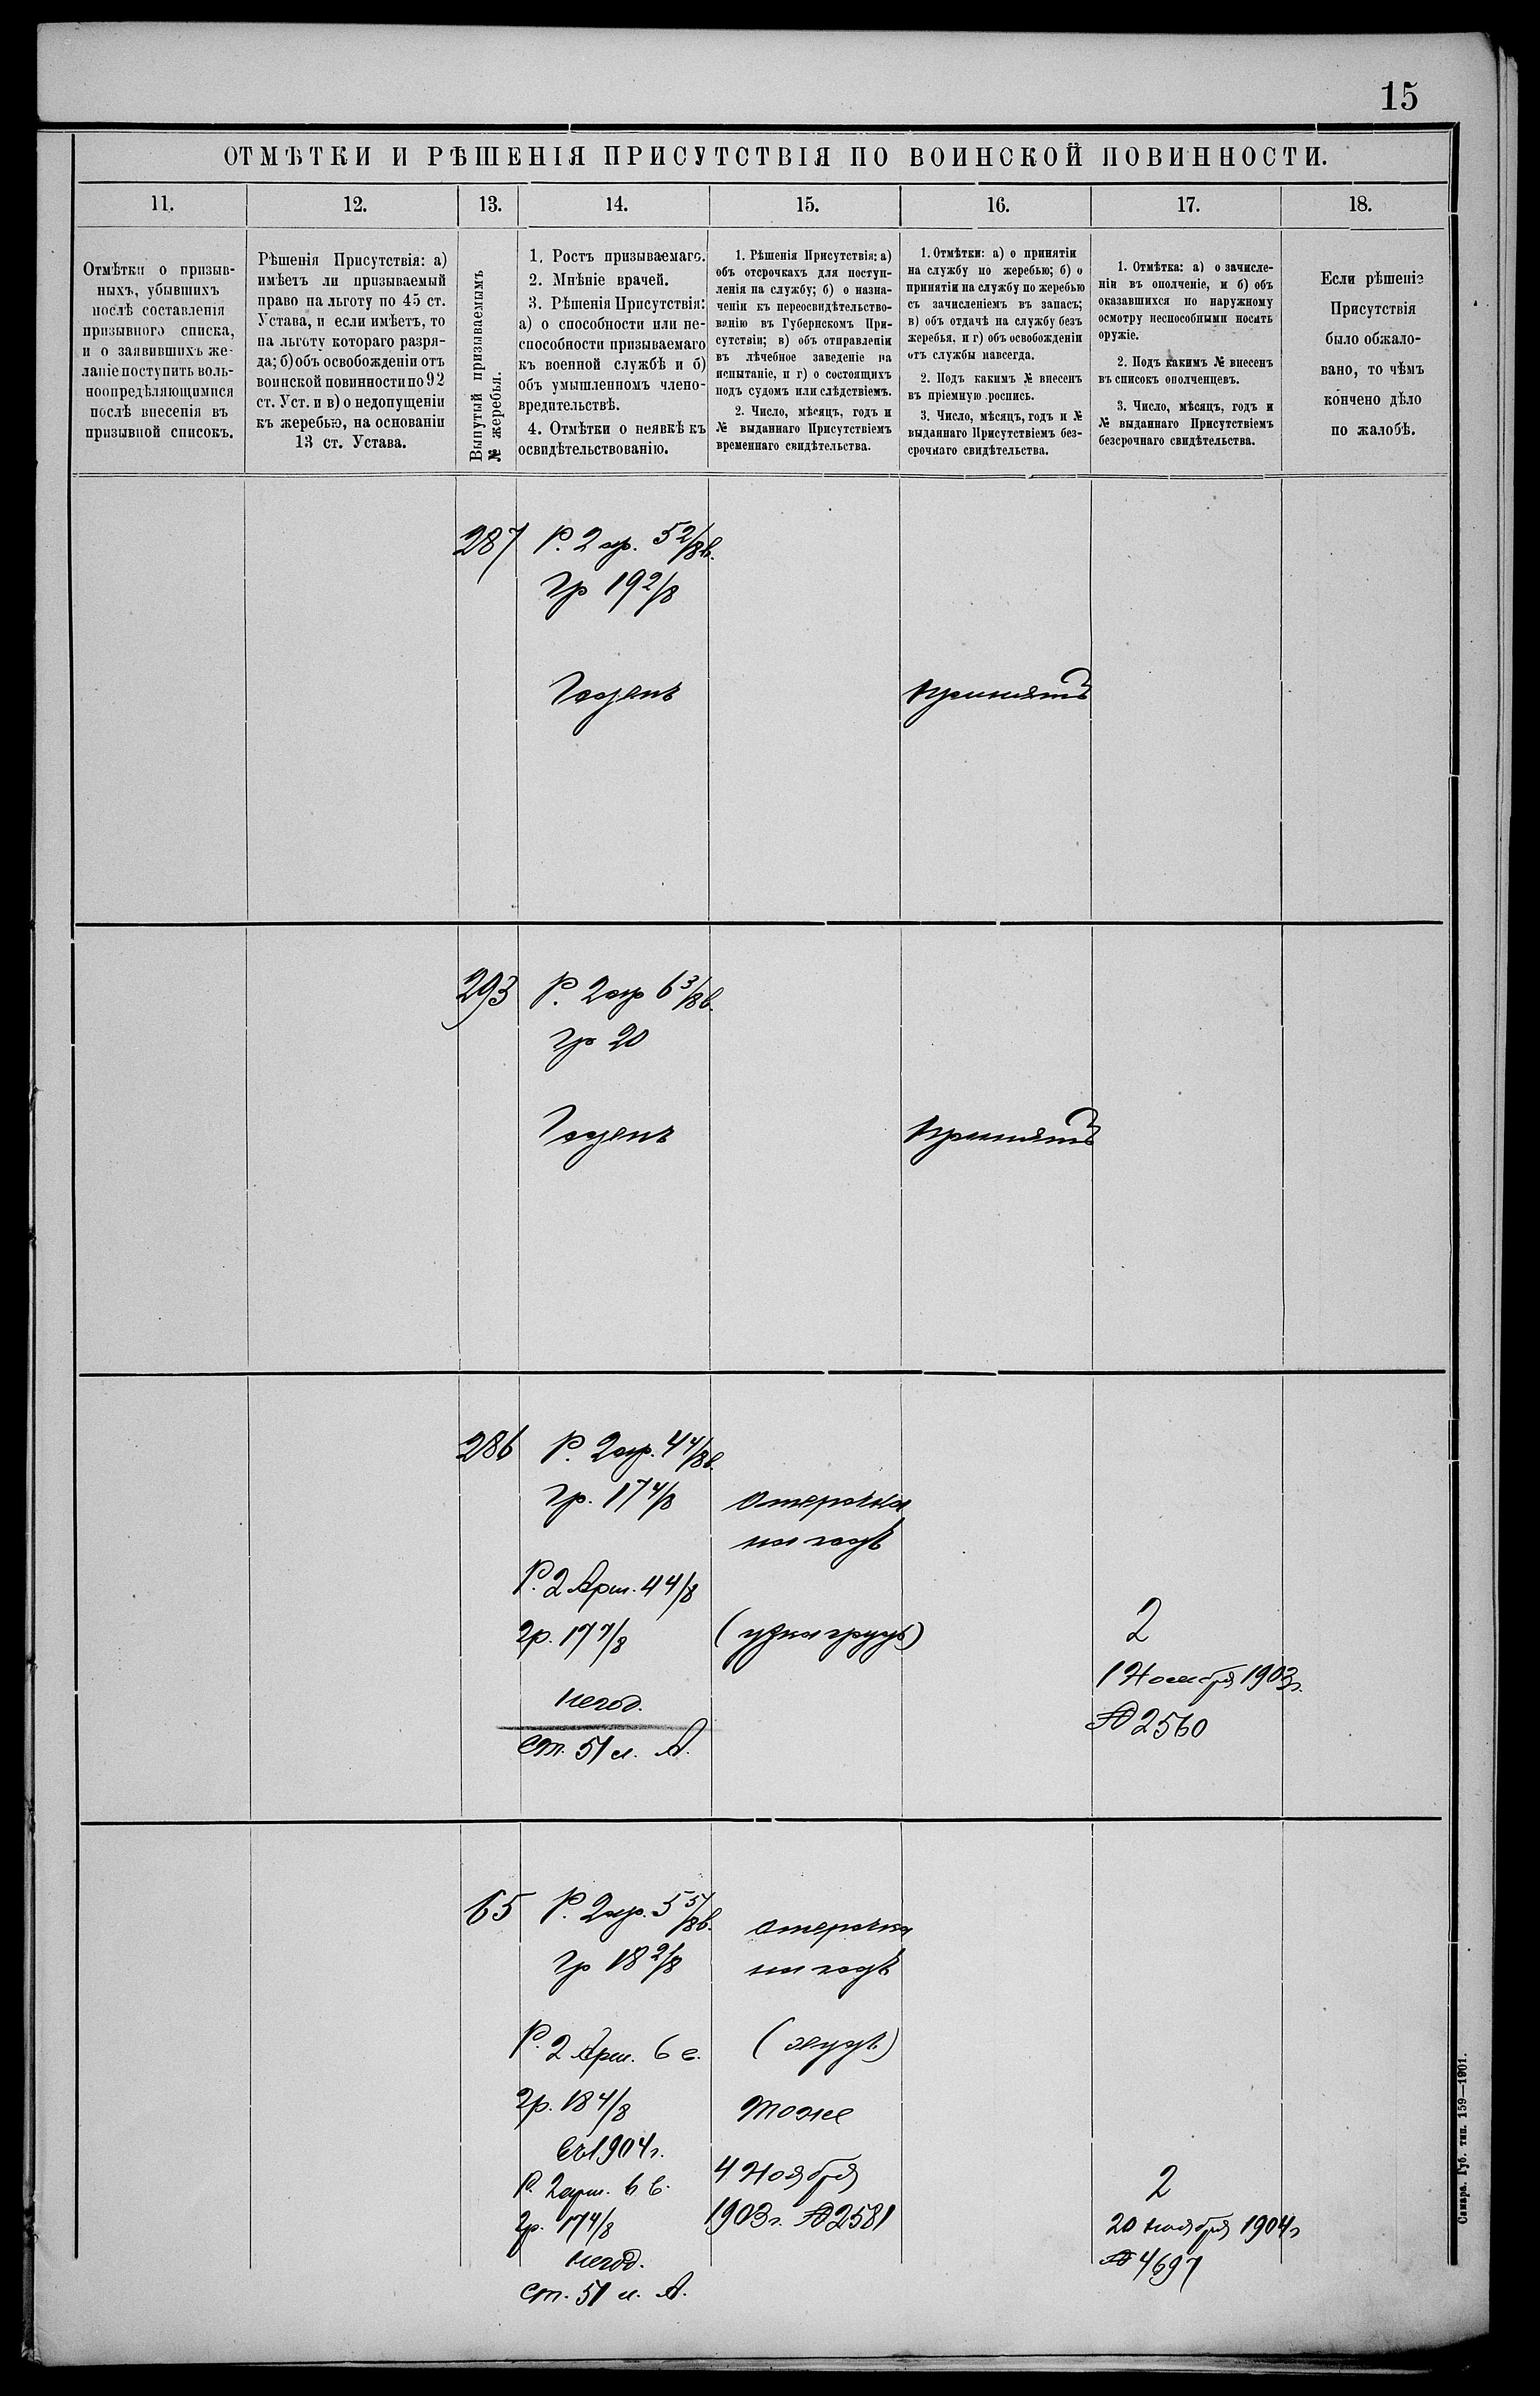 15
ОТМѢТКИ И РѢШЕНІЯ ПРИСУТСТВІЯ ПО ВОИНСКОЙ ПОВИННОСТИ.
11.
12.
13.
14.
15.
16.
17.
18.
Отмѣтки о призыв-
ныхъ, убывшихъ
послѣ составленія
призывного списка,
и о заявившихъ же-
ланіе поступить воль-
ноопредѣляющимися
послѣ внесенія въ
призывной списокъ.
Рѣшенія Присутствія: а)
имѣетъ ли призываемый
право на льготу по 45 ст.
Устава, и если имѣетъ, то
на льготу котораго разря-
да; б) объ освобожденіи отъ
воинской повинности по 92
ст. Уст. и в) о недопущеніи
къ жеребью, на основаніи
13 ст. Устава.
Вынутый призываемымъ
№ жеребья.
1. Ростъ призываемаго.
2. Мнѣніе врачей.
3. Рѣшенія Присутствія:
а) о способности или не-
способности призываемаго
къ военной службѣ и б)
объ умышленномъ члено-
вредительствѣ.
4. Отмѣтки о неявкѣ къ
освидѣтельствованію.
1. Рѣшенія Присутствія: а)
объ отсрочкахъ для поступ-
ленія на службу; б) о назна-
ченіи къ переосвидѣтельство-
ванію въ Губернскомъ При-
сутствіи; в) объ отправленіи
въ лѣчебное заведеніе на
испытаніе, и г) о состоящихъ
подъ судомъ или слѣдствіемъ.
2. Число, мѣсяцъ, годъ и
№ выданнаго Присутствіемъ
временнаго свидѣтельства.
1. Отмѣтки: а) о принятіи
на службу по жеребью; б) о
принятіи на службу по жеребью
съ зачисленіемъ въ запасъ;
в) объ отдачѣ на службу безъ
жеребья, и г) объ освобожденіи
отъ службы навсегда.
2. Подъ какимъ № внесенъ
въ пріемную роспись.
3. Число, мѣсяцъ, годъ и №
выданнаго Присутствіемъ без-
срочнаго свидѣтельства.
1. Отмѣтка: а) о зачисле-
ніи въ ополченіе, и б) объ
оказавшихся по наружному
осмотру неспособными носить
оружіе.
2. Подъ какимъ № внесенъ
въ списокъ ополченцевъ.
3. Число, мѣсяцъ, годъ и
№ выданнаго Присутствіемъ
безсрочнаго свидѣтельства.
Если рѣшеніе
Присутствія
было обжало-
вано, то чѣмъ
кончено дѣло
по жалобѣ.
287 Р. 2 ар. 5 2/8 в.
Гр 19 2/8
Годенъ
принятъ
293 Р. 2 ар 6 3/8 в.
гр 20
Годенъ
принятъ
286 Р. 2 ар. 4 4/8 в.
Гр. 17 4/8
отсрочка
на годъ
Р. 2 Арш. 4 4/8
гр. 17 7/8
(узка грудь)
негод.
ст. 51 л. А.
2
1 Ноября 1903 г.
№ 2560
65 Р. 2 ар. 5 5/8 в.
гр 18 2/8
отсрочка
на годъ
Р. 2 Арш. 6 в.
(худъ)
гр. 18 4/8
тоже
въ 1904 г.
4 Ноября
Р. 2 арш. 6 в.
1903 г. № 2581
гр. 17 4/8
негод.
ст. 51 л. А.
2
20 ноября 1904 г
№ 4697
Самара. Губ. тип. 159—1901.